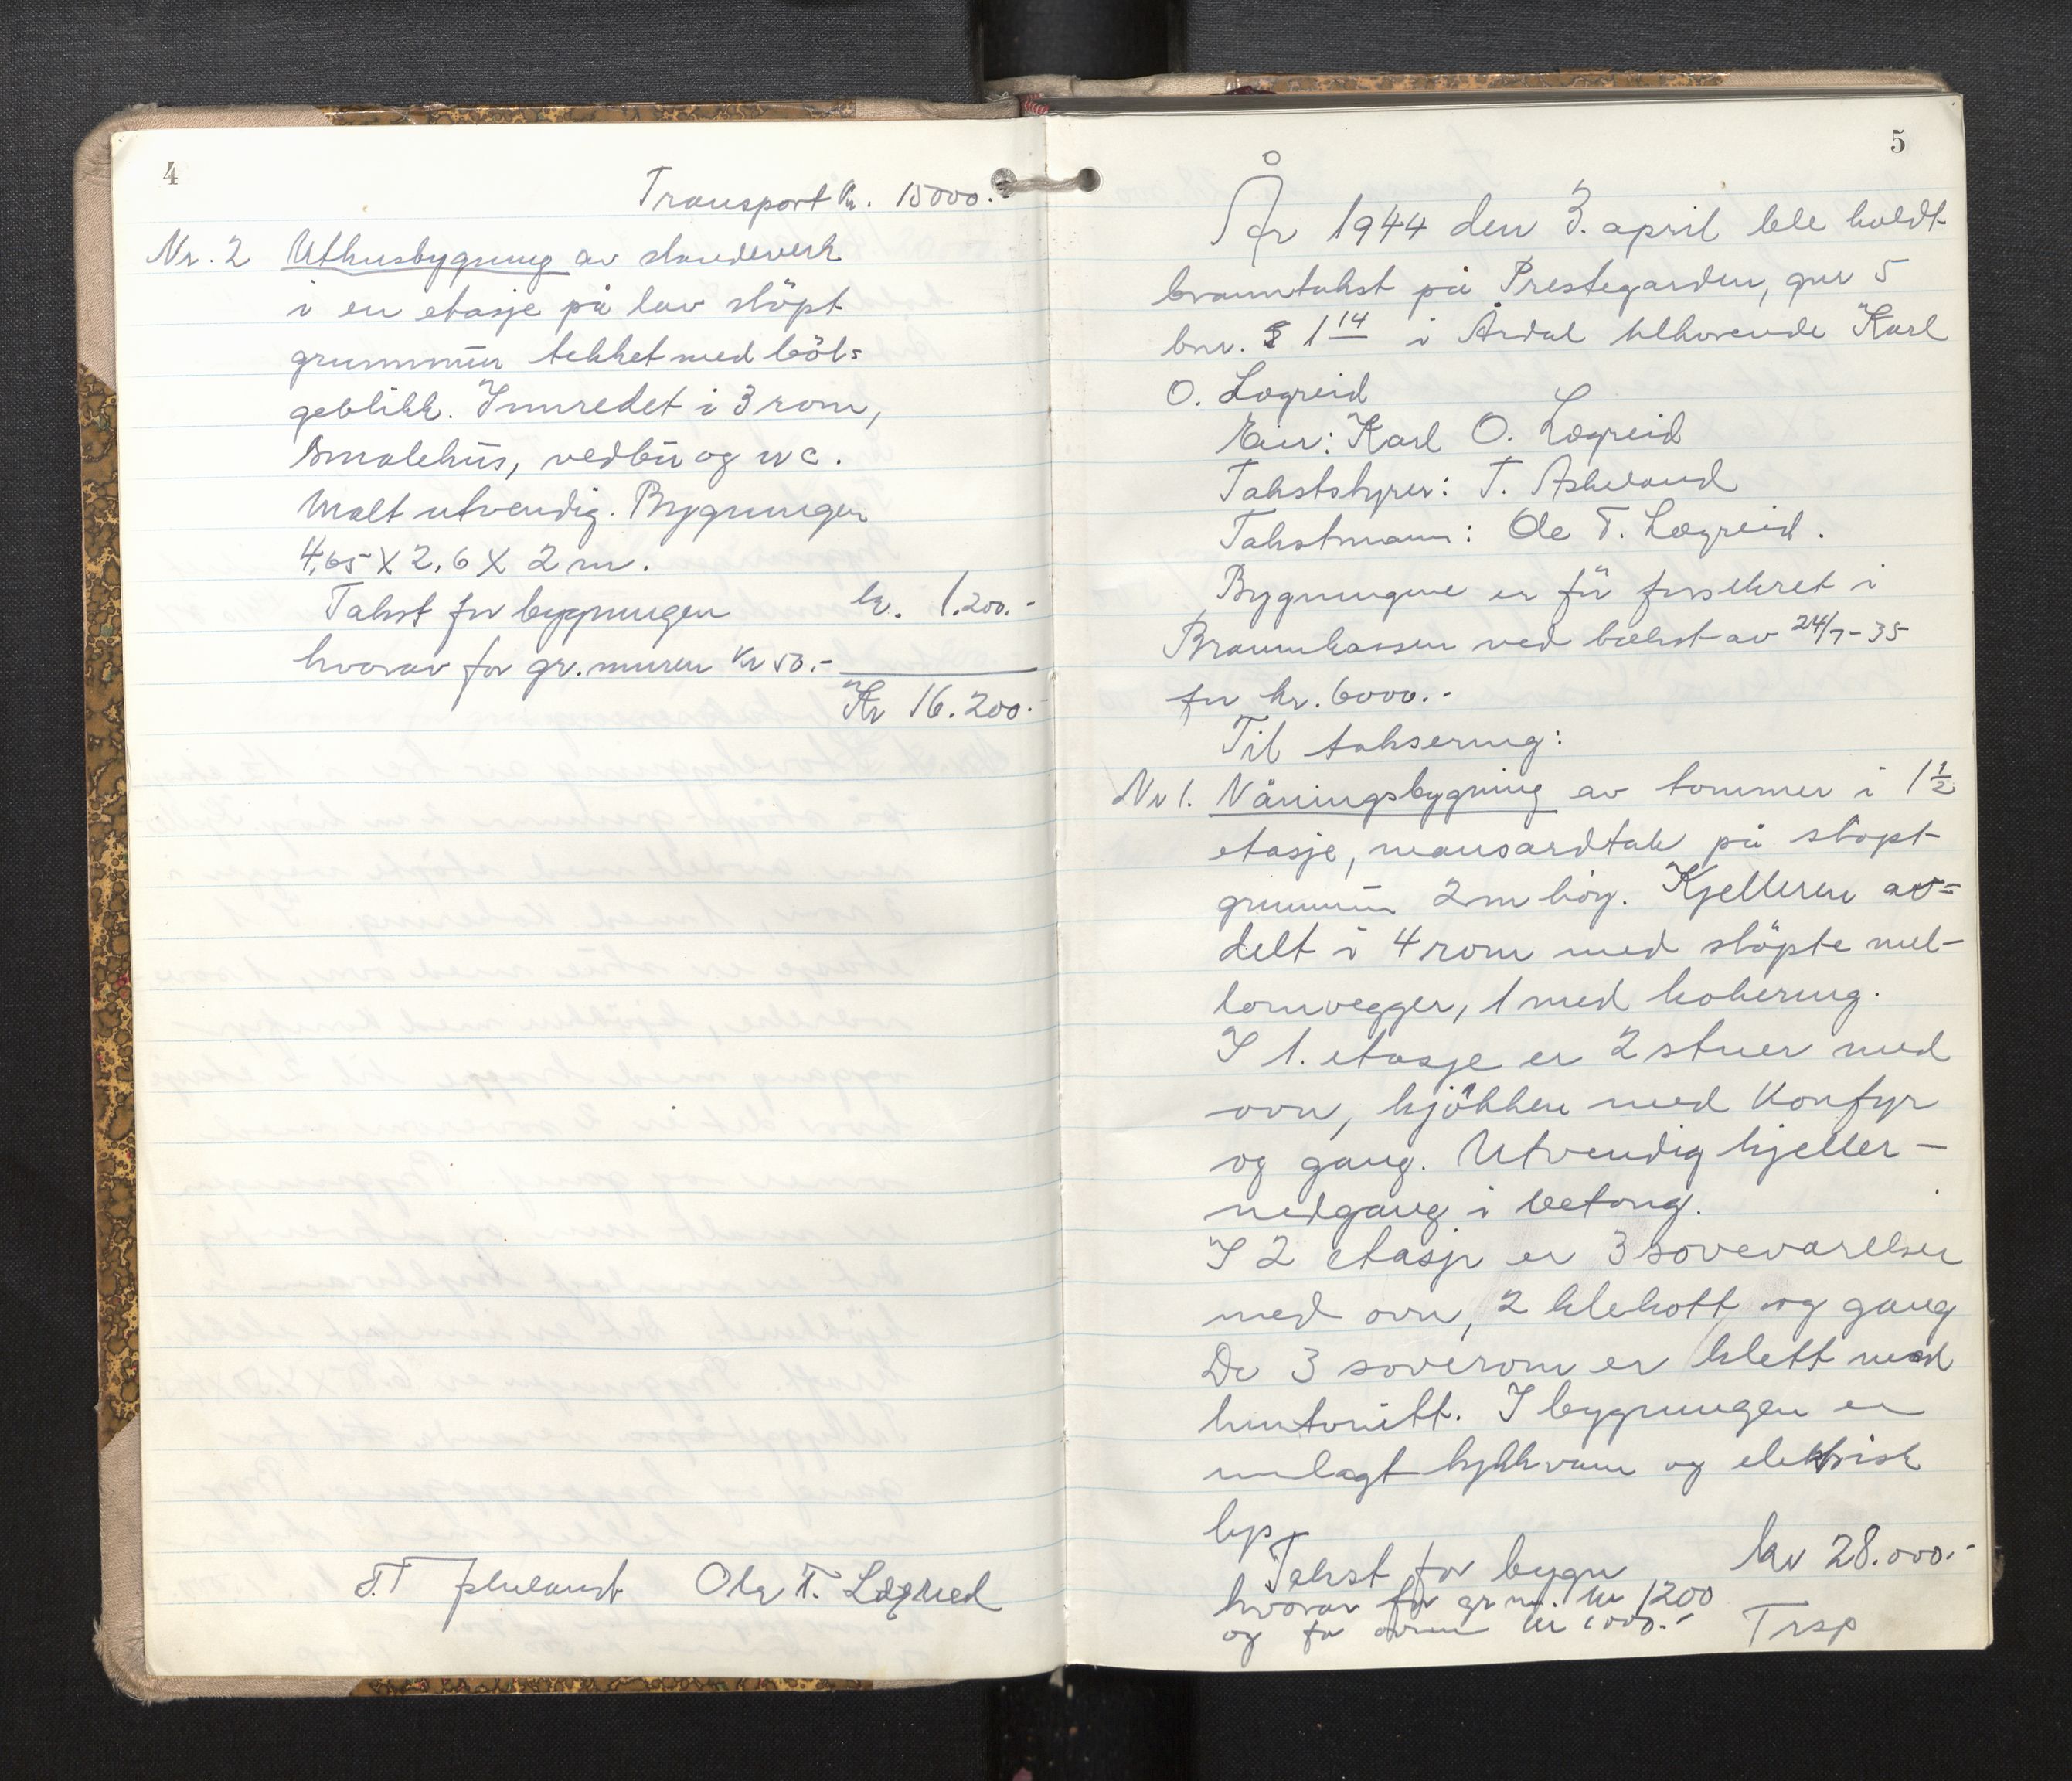 4
Transport kr. 15000.-
Nr. 2 Uthusbygning av standeverk
i en etasje på lav stöpt
grunnmur tekket med böl=
geblikk. Innredet i 3 rom,
Smalehus, vedbu og wc.
Malt utvendig. Bygningen
4,65 X 2,6 X 2 m.
Takst for bygningen kr. 1.200.-
hvorav for gr. muren kr 50.-
Kr 16.200.-
T. T. Askeland Ole T. Lægreid
5
År 1944 den 3. april ble holdt
branntakst på Prestegarden, gnr 5
bnr. 1 14 i Årdal tilhorende Karl
O. Lægreid
Eier: Karl O. Lægreid
Takststyrer: T. Askeland
Takstmann: Ole T. Lægreid.
Bygningene er för forsikret i
Brannkassen ved takst av 24/7-35
for kr. 6000.-
Til taksering:
Nr 1. Våningsbygning av tommer i 1 1/2
etasje, mansardtak på stöpt
grunnmur 2 m höy. Kjelleren av=
delt i 4 rom med stöpte mel-
lomvegger, 1 med kokering.
I 1. etasje er 2 stuer med
ovn, kjökken med Konfyr
og gang. Utvendig kjeller-
nedgang i betong.
I 2 etasje er 3 soveværelser
med ovn, 2 klekott og gang
De 3 soverom er klett med
huntonitt. I bygningen er
innlagt trykkvann og elektrisk
lys
Takst for bygn kr 28.000.-
hvorav for gr m. kr 1200
og for ovnen kr 1000.- Trsp